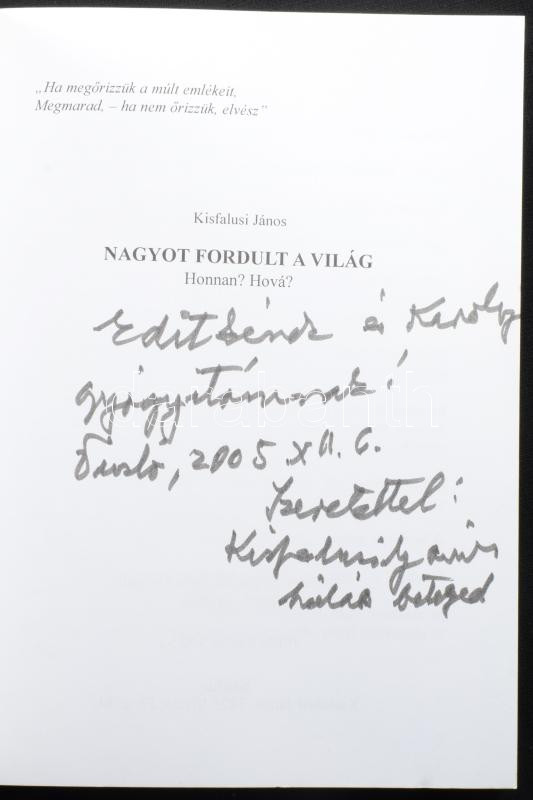 „Ha megőrizzük a múlt emlékeit,
Megmarad, – ha nem őrizzük, elvész”
Kisfalusi János
NAGYOT FORDULT A VILÁG
Honnan? Hová?
és Károly
gyógyítómnak!
2005. XII. 6.
Szeretettel:
Kisfalusi János
hálás beteged
darabanth